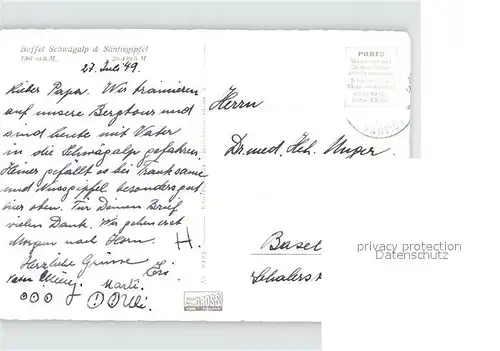 Buffet Schwägalp & Säntisgipfel
1360 m.ü.M. 2504 m.ü.M.
27. Juli 49.
Lieber Papa. Wir trainieren
auf unsere Bergtour und
sind heute mit Vater
in die Schwägalp gefahren.
Heiner gefällt es bei Tranksame
und Nussgipfel besonders gut
hier oben. Für Deinen Brief
vielen Dank. Wir gehen erst
Morgen nach Horn. H.
Herzliche Grüsse
Vater
Marti.
Ueli
PORTO
Herrn
Dr. med. Hch. Unger
Basel
GROSS
privacy protection
www.oldthing.com